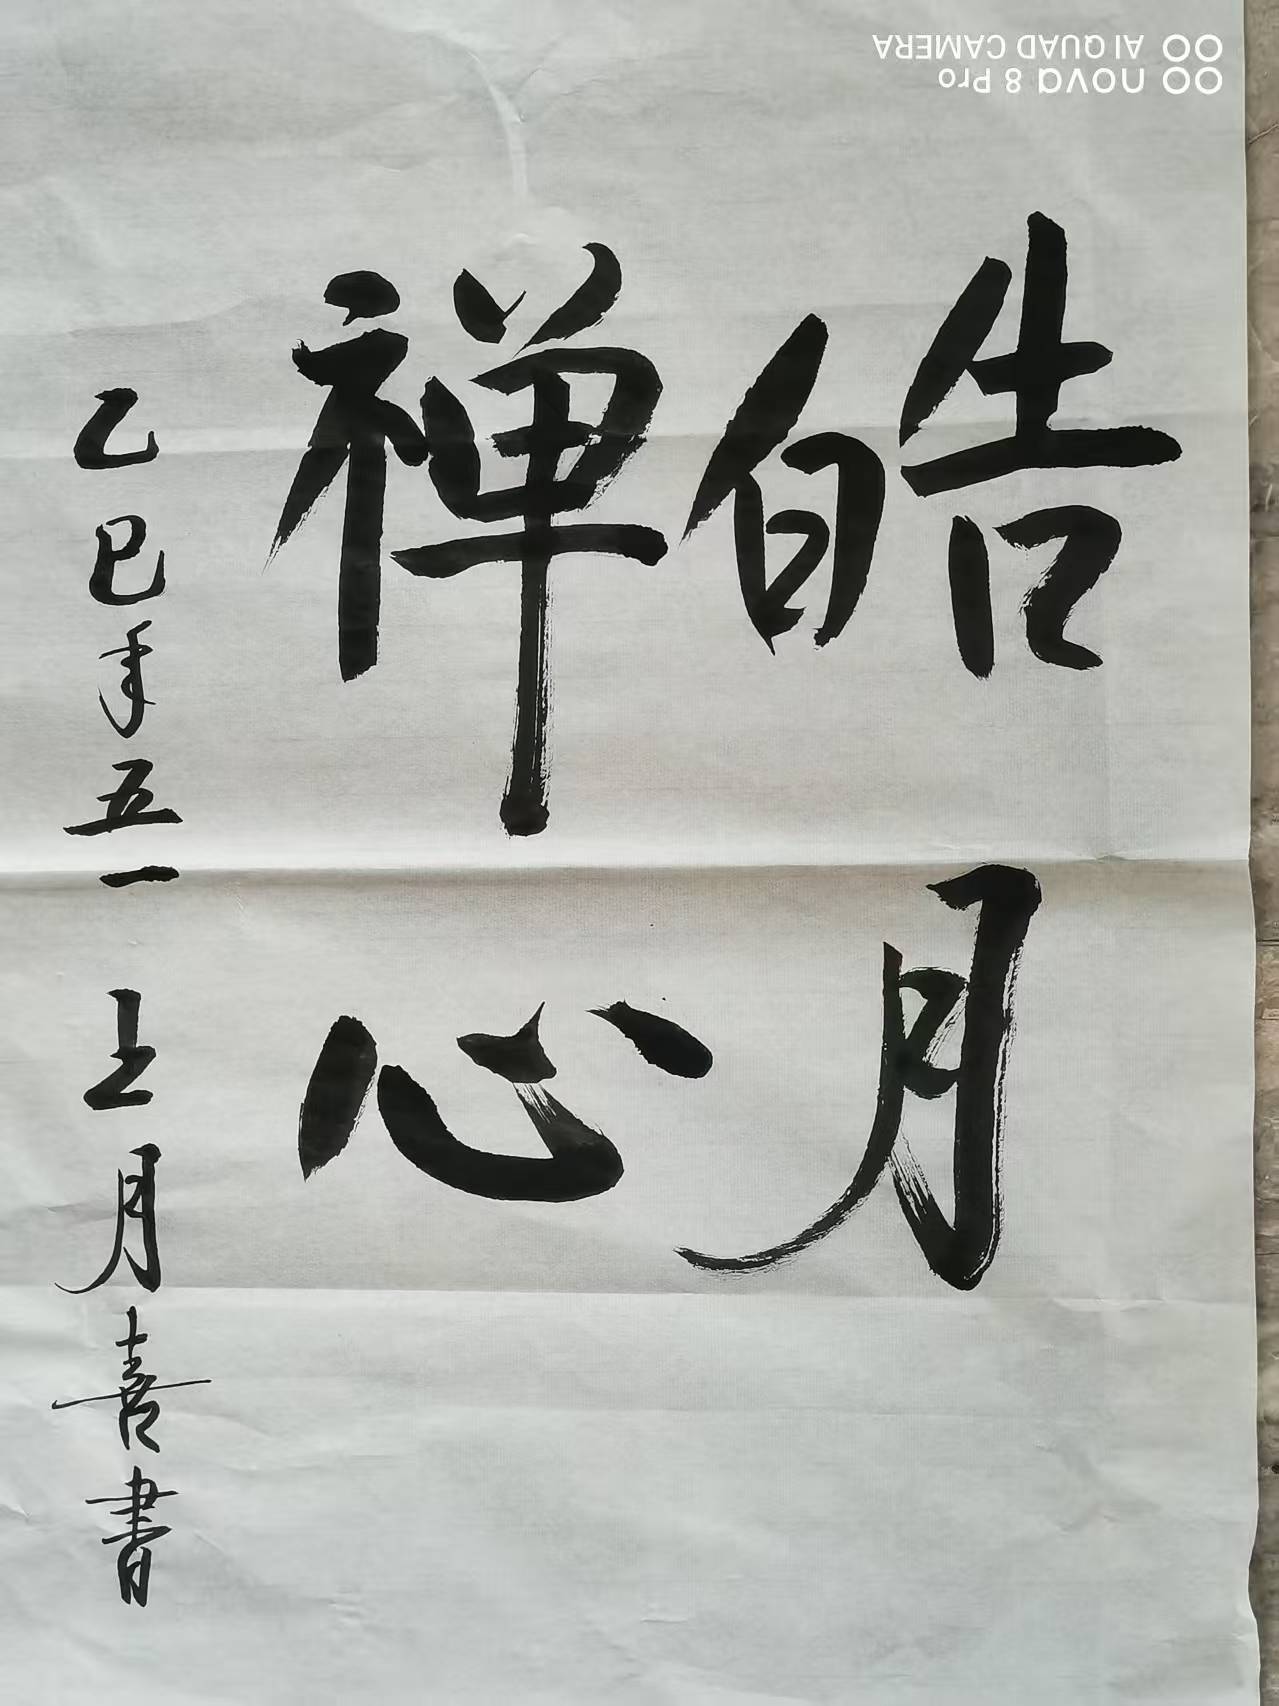 皓月
禅心
乙巳年五一王月喜書
nova 8 Pro
AI QUAD CAMERA